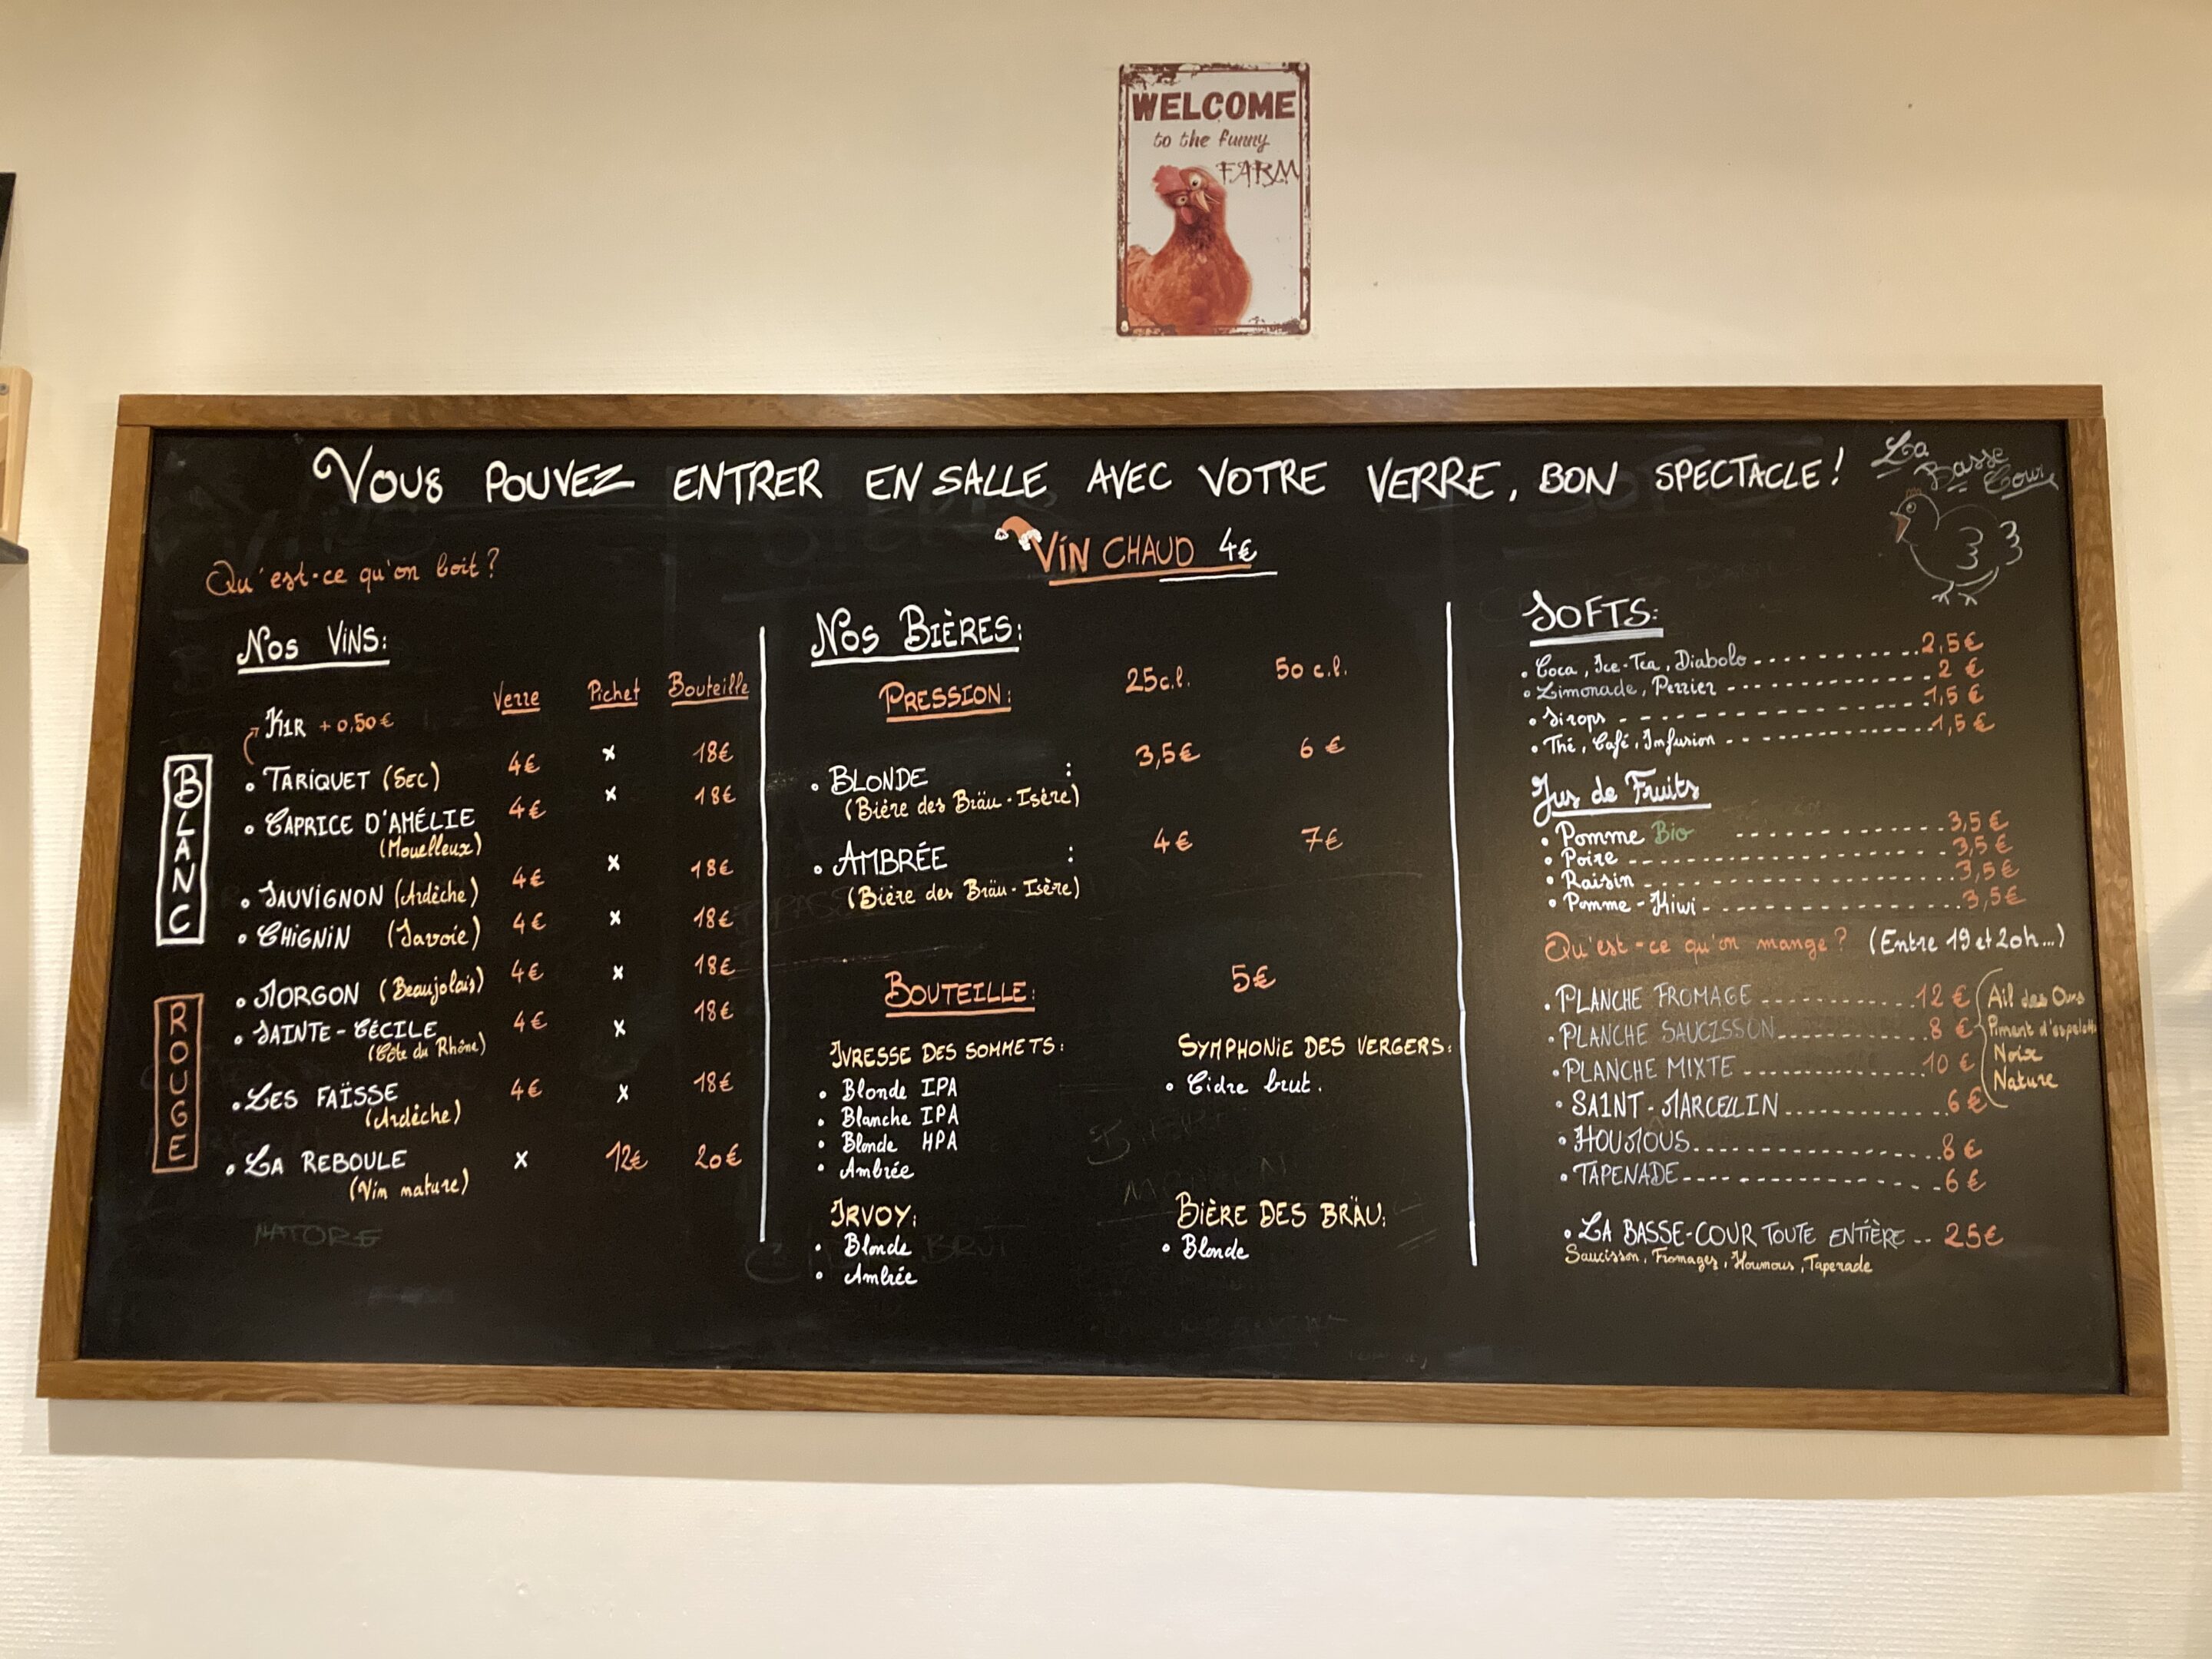 WELCOME
to the funny
FARM
VOUS POUVEZ ENTRER EN SALLE AVEC VOTRE VERRE, BON SPECTACLE!
La Basse Cour
VIN CHAUD 4€
Qu'est-ce qu'on boit?
NOS VINS:
Verre Pichet Bouteille
KIR + 0,50€
BLANC
• TARIQUET (SEC) 4€ x 18€
• CAPRICE D'AMÉLIE 4€ x 18€
(Mouelleux)
• SAUVIGNON (Ardèche) 4€ x 18€
• CHIGNIN (Savoie) 4€ x 18€
ROUGE
• MORGON (Beaujolais) 4€ x 18€
• SAINTE-CÉCILE 4€ x 18€
(Côte du Rhône)
• LES FAÏSSE 4€ x 18€
(Ardèche)
• LA REBOULE x 12€ 20€
(Vin nature)
NATORE
NOS BIÈRES:
PRESSION: 25c.l. 50 c.l.
• BLONDE : 3,5€ 6€
(Bière des Bräu - Isère)
• AMBRÉE : 4€ 7€
(Bière des Bräu - Isère)
BOUTEILLE: 5€
IVRESSE DES SOMMETS:
• Blonde IPA
• Blanche IPA
• Blonde HPA
• Ambrée
SYMPHONIE DES VERGERS:
• Cidre brut.
IRVOY:
• Blonde
• Ambrée
BIÈRE DES BRÄU:
• Blonde
SOFTS:
• Coca, Ice-Tea, Diabolo 2,5€
• Limonade, Perrier 2 €
• Sirops 1,5€
• Thé, Café, Infusion 1,5€
Jus de Fruits
• Pomme Bio 3,5€
• Poire 3,5€
• Raisin 3,5€
• Pomme-Kiwi 3,5€
Qu'est-ce qu'on mange? (Entre 19 et 20h...)
• PLANCHE FROMAGE 12€
• PLANCHE SAUCISSON 8€
• PLANCHE MIXTE 10€
• SAINT-MARCELLIN 6€
Ail des Ours
Piment d'espelette
Noix
Nature
• HOUMOUS 8€
• TAPENADE 6€
• LA BASSE-COUR TOUTE ENTIÈRE 25€
Saucisson, Fromages, Houmous, Tapenade